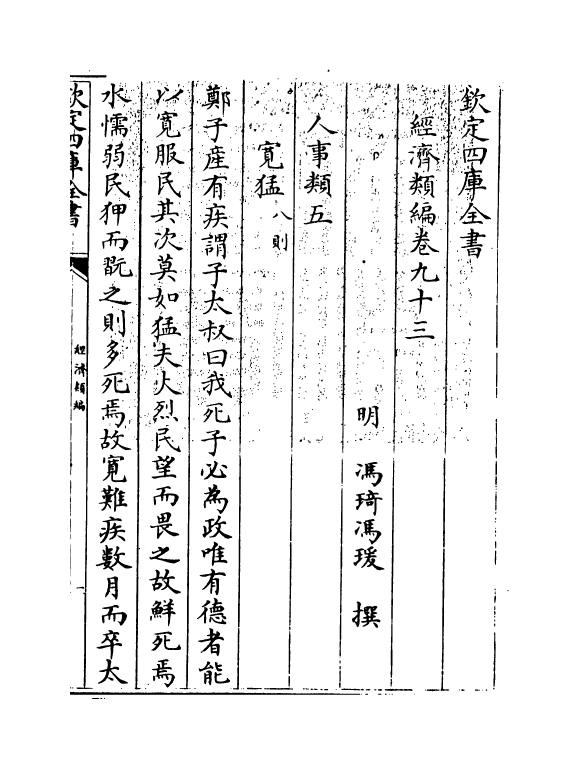 欽定四庫全書
經濟類編卷九十三
明 馮琦馮瑗 撰
人事類五
寛猛八則
鄭子產有疾謂子太叔曰我死子必為政唯有德者能
以寛服民其次莫如猛夫火烈民望而畏之故鮮死焉
水懦弱民狎而翫之則多死焉故寛難疾數月而卒太
欽定四庫全書
經濟類編